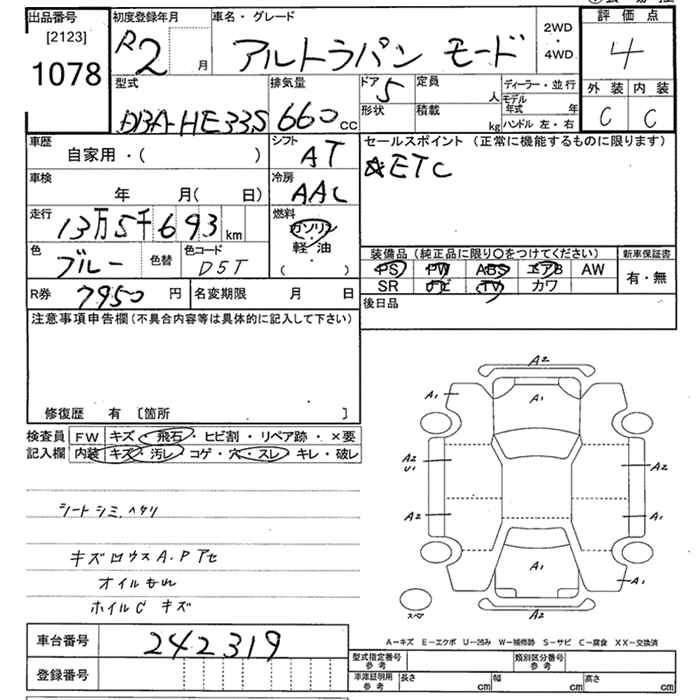 出品番号 初度登録年月 車名・グレード 2WD・4WD 評価点
[2123] R2 月 アルトラパン モード 4
1078
型式 排気量 ドア 5 定員 人 ディーラー・並行 外装 内装
DBA-HE33S 660 cc 形状 積載 kg モデル年式 年 C C
ハンドル 左・右
車歴 シフト セールスポイント (正常に機能するものに限ります)
自家用・( ) AT ☆ETC
車検 冷房
年 月( 日) AAC
走行 燃料
13万5千693 km ガソリン
軽油
( )
色 ブルー 色替 色コード D5T
装備品 (純正品に限り〇をつけてください) 新車保証書
PS PW ABS エアB AW 有・無
SR ナビ TV カワ
R券 7950 円 名変期限 月 日 後日品
注意事項申告欄(不具合内容等は具体的に記入して下さい)
修復歴 有 [箇所 ]
検査員 FW キズ・飛石・ヒビ割・リペア跡・×要
記入欄 内装 キズ・汚レ・コゲ・穴・スレ・キレ・破レ
シートシミ、ヘタリ
キズ
オイルもれ
ホイルC キズ
A2
A1 A1 A2
A2 U1 A2
A2 A1
A1 A1
A2
スペア
A-キズ E-エクボ U-凹み W-補修跡 S-サビ C-腐食 XX-交換済
車台番号 242319
登録番号
型式指定番号 参考 類別区分番号 参考
車庫証明用 参考 長さ cm 幅 cm 高さ cm